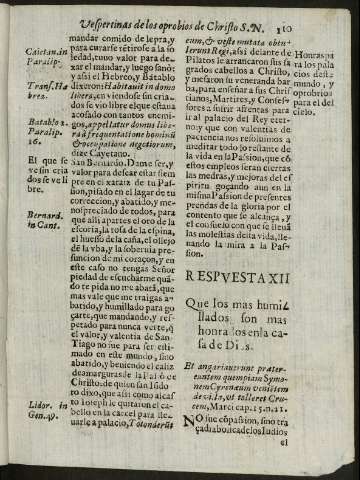 Vespertinas de los oprobios de Christo S.N. 110
Caietan. in
Paralip.
Transf. Ha
brez.
Batablo 2.
Paralip.
26.
El que se
ve sin cria
dos se ve li
bre.
Bernard.
in Cant.
Lidor. in
Gen. 49.
mandar comido de lepra, y
para curarse retirose a la so
ledad, tuuo valor para de-
xar el mandar, y luego sanò:
y assi el Hebreo, y Batablo
dixeron: Habitauit in domo
libera, en viendose sin cria-
dos se vio libre el que estaua
acosado con tantos enemi-
gos, appellatur domus libe-
ra à frequentatione hominũ
& occupatione negotiorum,
dize Cayetano.
San Bernardo. Dame ser, y
valor para desear estar siem
pre en ti xarata de tu Pas-
sion, pisado en el lagar de tu
correccion, y abatido, y me-
nospreciado de todos, para
que alli apartes el oro de la
escoria, la rosa de la espina,
el huesso de la caña, el ollejo
de la vba, y la soberuia y pre
suncion de mi coraçon, y en
este caso no tengas Señor
piedad de escucharme quã-
do te pida no me abatã, que
mas vale que me traigas a-
batido, y humillado para go
çarte, que mandando, y res-
petado para nunca verte, q̃
el valor, y valentia de San-
Tiago no fue para ser esti-
mado en este mundo, sino
abatido, y beuiendo el caliz
de amarguras de la Passiõ de
Christo, de quien san Isido
ro dixo, que assi como al cas
to Ioseph le quitaron el ca-
bello en la carcel para lle-
uarle a palacio, Totonderũt
eum, & veste mutata obtu-
lerunt Regi, assi delante de
Pilatos le arrancaron sus sa
grados cabellos a Christo,
y mesaron su veneranda bar
ba, para enseñar a sus Chris
tianos, Martires, y Confes-
sores a sufrir afrentas para
ir al palacio del Rey eter-
no, y que con valentias de
paciencia nos resoluamos a
meditar todo lo restante de
la vida en la Passion, que cõ
estos empleos seran ciertas
las medras, y mejoras del es
piritu, goçando aun en la
misma Passion de presentes
prendas de la gloria por el
contento que se alcança, y
el consuelo con que se lleuã
las molestias de ita vida, lle-
uando la mira a la Pas-
sion.
Honras pa
ra los pala
cios deste
mundo, y
oprobrios
para el del
cielo.
RESPVESTA XII
Que los mas humi-
llados son mas
honra los en la ca-
sa de Di s.
Et angariauerunt prater-
euntem quempiam Symo-
nem Cyreneum venientem
de villa, vt tolleret Cru-
cem, Marci cap. 15. n. 21.
NO fue cõpassion, sino tra
ça diabolica de los Iudios
el